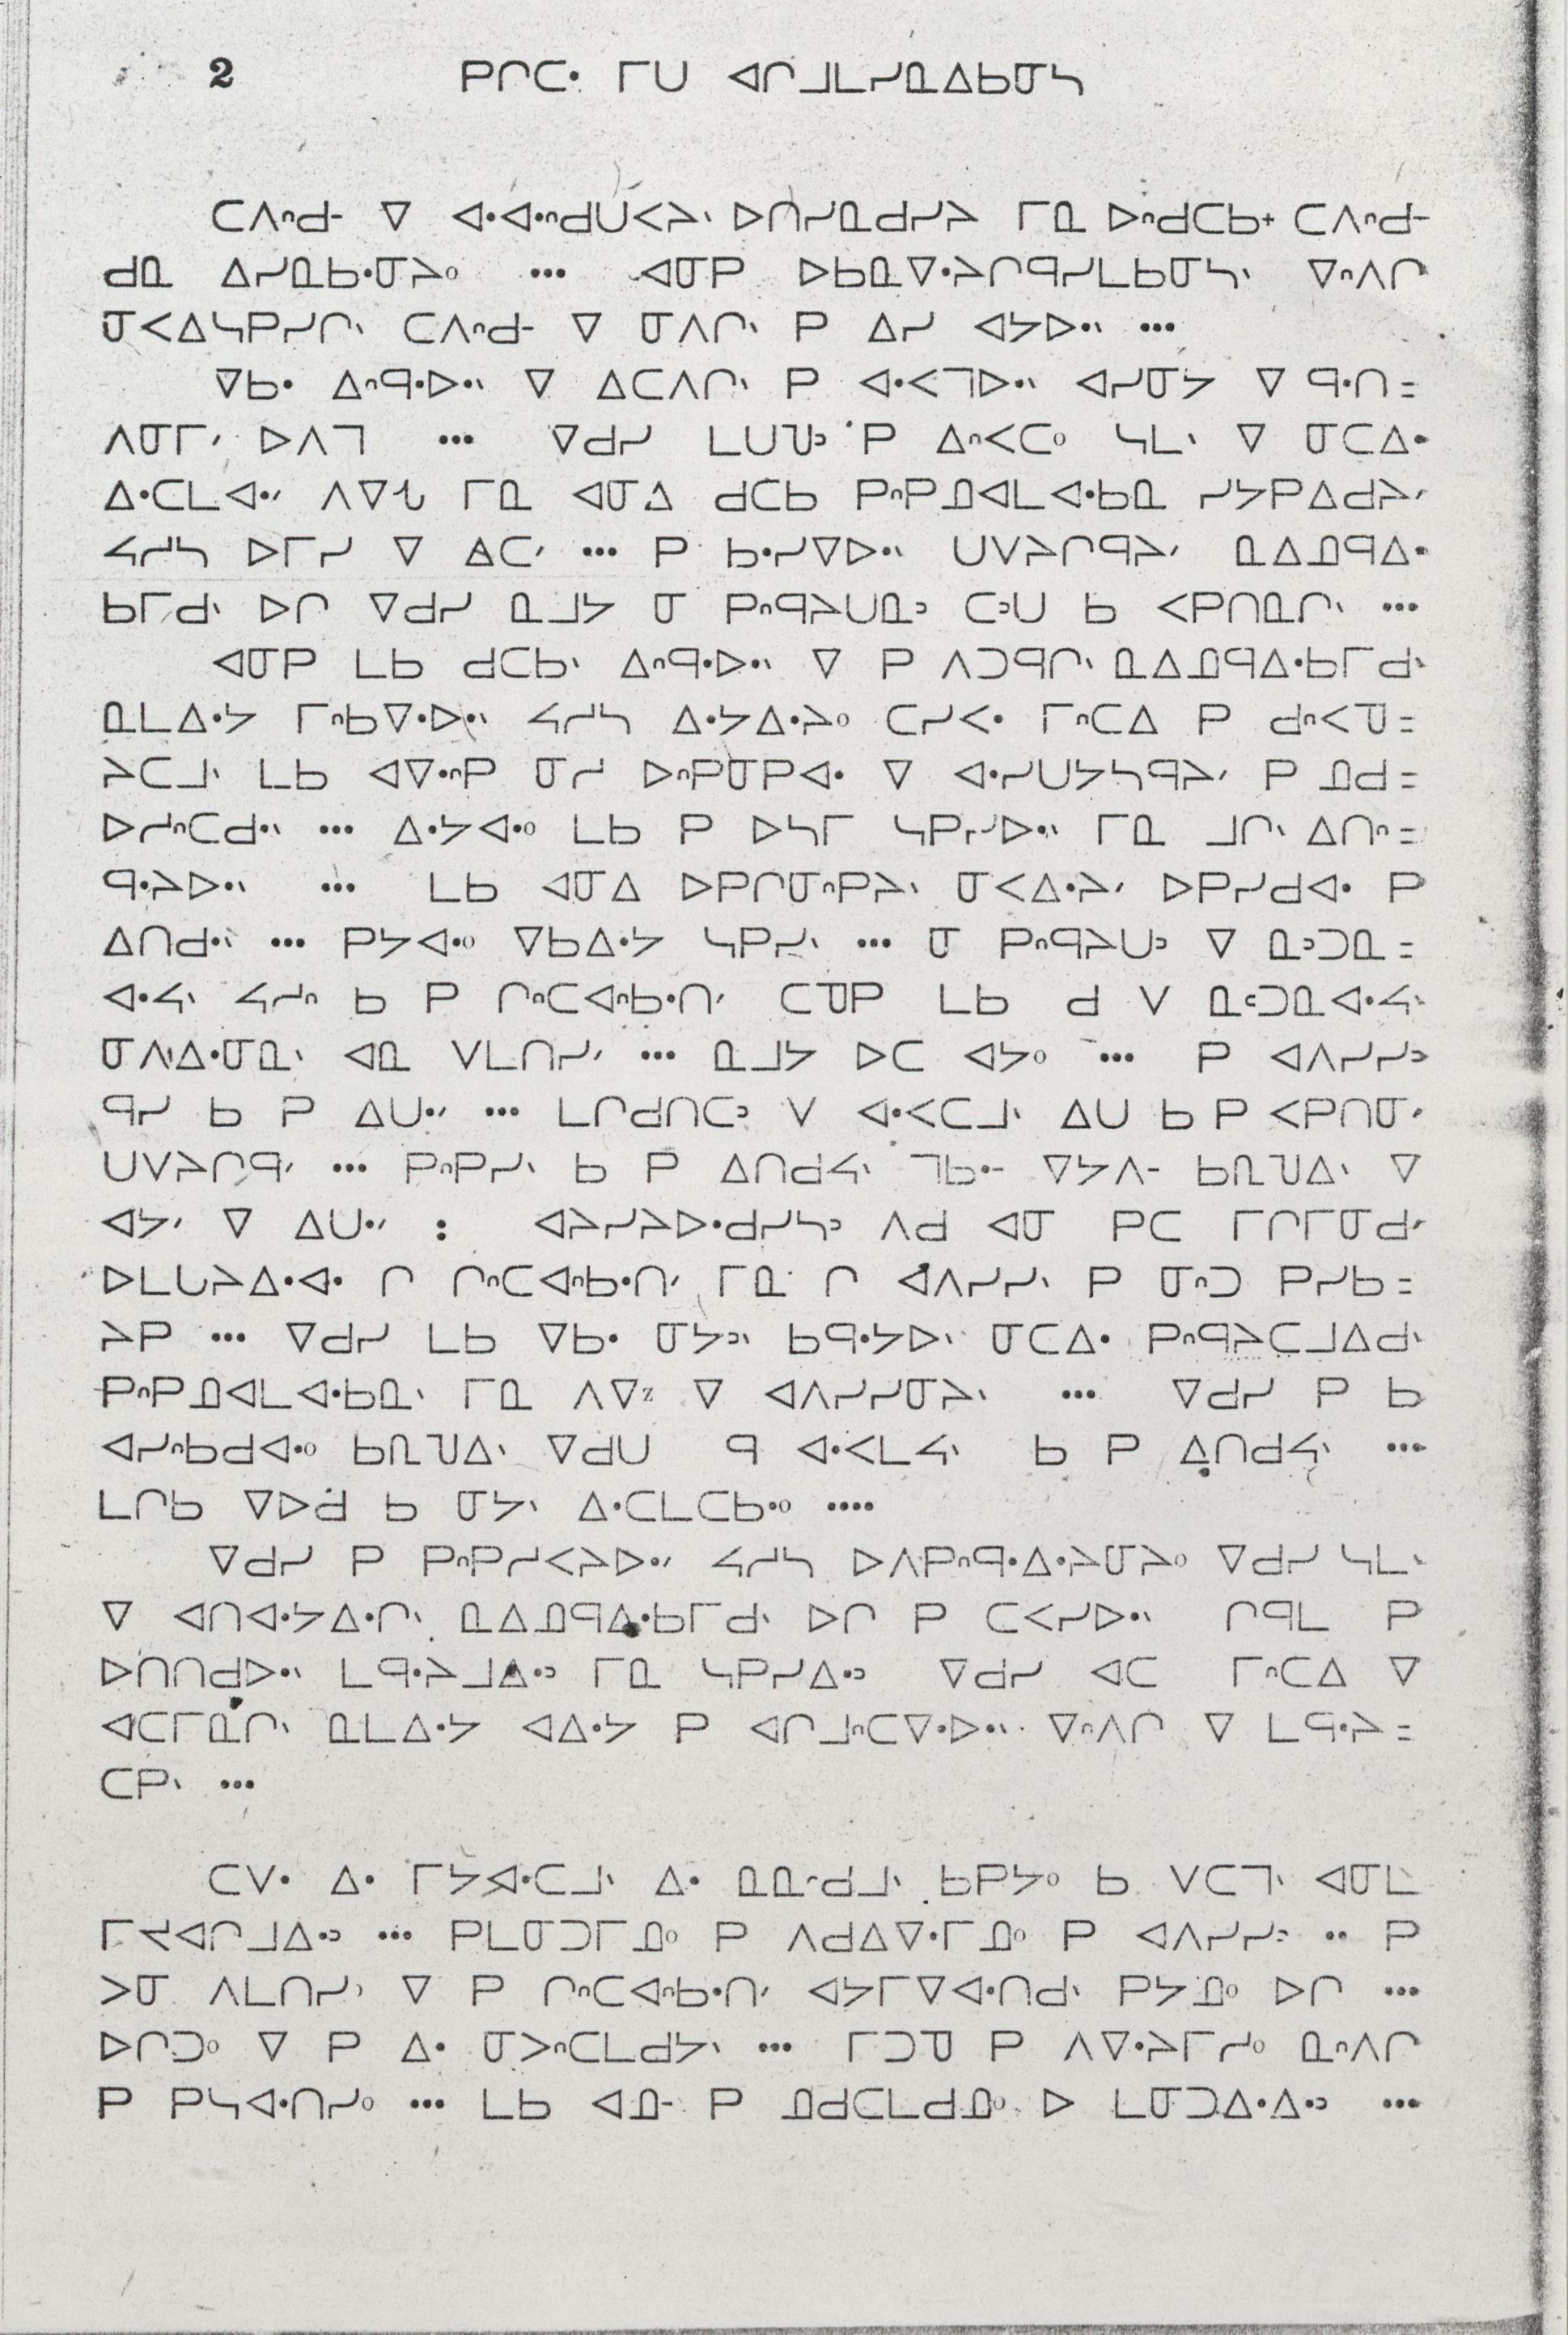 2 ᑭᒋᑕᐧ ᒥᑌ ᐊᒋᒧᒪᓯᓇᐃᑲᓂᓴ
ᑕᐱᐢᑯᐨ ᐁ ᐊᐧᐊᐧᐢᑯᑌᐸᔨᐠ ᐅᑎᓯᓇᑯᓯᔨ ᒥᓇ ᐅᐢᑯᑕᑲᐩ ᑕᐱᐢᑯᐨ
ᑯᓇ ᐃᓯᓇᑲᐧᓂᔨᐤ ... ᐊᓂᑭ ᐅᑲᓇᐁᐧᔨᒋᑫᓯᒪᑲᓂᓴᐠ ᐁᐢᐱᒋ
ᓂᐸᐃᓴᑭᓯᒋᐠ ᑕᐱᐢᑯᐨ ᐁ ᓂᐱᒋᐠ ᑭ ᐃᓯ ᐊᔭᐅᐧᐠ ...
ᐁᑲᐧ ᐃᐢᑫᐧᐅᐧᐠ ᐁ ᐃᑕᐱᒋᐠ ᑭ ᐊᐧᐸᒣᐅᐧᐠ ᐊᓯᓂᔭ ᐁ ᑫᐧᑎ=
ᐱᓂᒥᐟ ᐅᐱᒣ ... ᐁᑯᓯ ᒪᑌᓏᐣ ᑭ ᐃᐢᐸᑕᐤ ᓴᒪᐠ ᐁ ᓂᑕᐃᐧ
ᐃᐧᑕᒪᐊᐧᐟ ᐱᐁᕒ ᒥᓇ ᐊᓂᐃ ᑯᑕᑲ ᑭᐢᑭᓄᐊᒪᐊᐧᑲᓇ ᓯᔭᑭᐃᑯᔨᐟ
ᓭᓱᓴ ᐅᒥᓯ ᐁ ᐃᑕᐟ ... ᑭ ᑲᐧᓯᐁᐅᐧᐠ ᑌᐯᔨᒋᑫᔨᐟ ᓇᐃᓄᑫᐃᐧ
ᑲᒥᑯᐠ ᐅᒋ ᐁᑯᓯ ᓇᒧᔭ ᓂ ᑭᐢᑫᔨᑌᓇᐣ ᑕᐣᑌ ᑲ ᐸᑭᑎᓇᒋᐠ ...
ᐊᓂᑭ ᒪᑲ ᑯᑕᑲᐠ ᐃᐢᑫᐧᐅᐧᐠ ᐁ ᑭ ᐱᑐᑫᒋᐠ ᓇᐃᓄᑫᐃᐧᑲᒥᑯᐠ
ᓇᒪᐃᐧᔭ ᒥᐢᑲᐁᐧᐅᐧᐠ ᓭᓱᓴ ᐃᐧᔭᐃᐧᔨᐤ ᑕᓯᐸᐧ ᒥᐢᑕᐃ ᑭ ᑯᐢᐸᓀ=
ᔨᑕᒧᐠ ᒪᑲ ᐊᐁᐧᐢᑭ ᓂᓱ ᐅᐢᑭᓂᑭᐊᐧ ᐁ ᐊᐧᓯᑌᔭᓴᑫᔨᐟ ᑭ ᓄᑯ=
ᐅᓱᐢᑕᑯᐧᐠ ... ᐃᐧᔭᐊᐧᐤ ᒪᑲ ᑭ ᐅᓴᒥ ᓴᑭᓯᐅᐧᐠ ᒥᓇ ᒧᒋᐠ ᐃᑎᐢ=
ᑫᐧᔨᐅᐧᐠ ... ᒪᑲ ᐊᓂᐃ ᐅᑭᒋᓂᐢᑭᔨᐠ ᓂᐸᐃᐧᔨᐟ ᐅᑭᓯᑯᐊᐧ ᑭ
ᐃᑎᑯᐧᐠ ... ᑭᔭᐊᐧᐤ ᐁᑲᐃᐧᔭ ᓴᑭᓯᐠ ... ᓂ ᑭᐢᑫᔨᑌᐣ ᐁ ᓇᐣᑐᓇ=
ᐊᐧᓭᐠ ᓭᓱᐢ ᑲ ᑭ ᒋᐢᑕᐊᐢᑲᐧᑎᐟ ᑕᓀᑭ ᒪᑲ ᑯ ᐯ ᓇᐣᑐᓇᐊᐧᓭᐠ
ᓂᐱᐃᐧᓂᓇᐠ ᐊᓇ ᐯᒪᑎᓯᐟ ... ᓇᒧᔭ ᐅᑕ ᐊᔭᐤ ... ᑭ ᐊᐱᓯᓯᐣ
ᑫᓯ ᑲ ᑭ ᐃᑌᐧᐟ ... ᒪᒋᑯᑎᑕᐣ ᐯ ᐊᐧᐸᑕᒧᐠ ᐃᑌ ᑲ ᑭ ᐸᑭᑎᓂᐟ
ᑌᐯᔨᒋᑫᐟ ... ᑭᐢᑭᓯᐠ ᑲ ᑭ ᐃᑎᑯᓭᐠ ᒣᑲᐧᐨ ᐁᔭᐱᐨ ᑲᓕᓓᐃᐠ ᐁ
ᐊᔭᐟ ᐁ ᐃᑌᐧᐟ : ᐊᔨᓯᔨᐅᐧᑯᓯᓴᐣ ᐱᑯ ᐊᓂ ᑭᑕ ᒥᒋᒥᓂᑯᐟ
ᐅᒪᒐᔨᐃᐧᐊᐧ ᒋ ᒋᐢᑕᐊᐢᑲᐧᑎᐟ ᒥᓇ ᒋ ᐊᐱᓯᓯᐠ ᑭ ᓂᐢᑐ ᑭᓯᑲ=
ᔨᑭ ... ᐁᑯᓯ ᒪᑲ ᐁᑲᐧ ᓂᔭᐣᐠ ᑲᑫᐧᔭᐅᐠ ᓂᑕᐃᐧ ᑭᐢᑫᔨᑕᒧᐃᑯᐠ
ᑭᐢᑭᓄᐊᒪᐊᐧᑲᓇᐠ ᒥᓇ ᐱᐁᕒ ᐁ ᐊᐱᓯᓯᓂᔨᐠ ... ᐁᑯᓯ ᑭ ᑲ
ᐊᓯᐢᑲᑯᐊᐧᐤ ᑲᓕᓓᐃᐠ ᐁᑯᑌ ᑫ ᐊᐧᐸᒪᓭᐠ ᑲ ᑭ ᐃᑎᑯᓭᐠ ...
ᒪᒋᑲ ᐁᐅᑯ ᑲ ᓂᔭᐠ ᐃᐧᑕᒪᑕᑲᐧᐤ ....
ᐁᑯᓯ ᑭ ᑭᐢᑭᓱᐸᔨᐅᐧᐟ ᓭᓱᓴ ᐅᐱᑭᐢᑫᐧᐃᐧᔨᓂᔨᐤ ᐁᑯᓯ ᓴᒪᐠ
ᐁ ᐊᑎᐊᐧᔭᐃᐧᒋᐠ ᓇᐃᓄᑫᐃᐧᑲᒥᑯᐠ ᐅᒋ ᑭ ᑕᐸᓯᐅᐧᐠ ᒋᑫᒪ ᑭ
ᐅᑎᑎᑯᐅᐧᐠ ᒪᑫᐧᔨᒧᐃᐧᐣ ᒥᓇ ᓴᑭᓯᐃᐧᐣ ᐁᑯᓯ ᐊᑕ ᒥᐢᑕᐃ ᐁ
ᐊᑕᒥᓇᒋᐠ ᓇᒪᐃᐧᔭ ᐊᐃᐧᔭ ᑭ ᐊᒋᒧᐢᑕᐁᐧᐅᐧᐠ ᐁᐢᐱᒋ ᐁ ᒪᑫᐧᔨ=
ᑕᑭᐠ ...
ᑕᐯᐧ ᐃᐧ ᒥᔭᐊᐧᑕᒧᐠ ᐃᐧ ᓇᓇᐢᑯᒧᐠ ᑲᑭᔭᐤ ᑲ ᐯᑕᒣᐠ ᐊᓂᒪ
ᒥᔪᐊᒋᒧᐃᐧᐣ ... ᑭᒪᓂᑐᒥᓄᐤ ᑭ ᐱᑯᐃᐁᐧᒥᓄᐤ ᑭ ᐊᐱᓯᓯᐣ .. ᑭ
ᐳᓂ ᐱᒪᑎᓯᐠ ᐁ ᑭ ᒋᐢᑕᐊᐢᑲᐧᑎᐟ ᐊᔭᒥᐁᐊᐧᑎᑯᐠ ᑭᔭᓄᐤ ᐅᒋ ...
ᐅᒋᑐᐤ ᐁ ᑭ ᐃᐧ ᓂᐳᐢᑕᒪᑯᔭᐠ ... ᒥᑐᓀ ᑭ ᐱᐁᐧᔨᒥᓱᐤ ᓇᐢᐱᒋ
ᑭ ᑭᓴᐊᐧᑎᓯᐤ ... ᒪᑲ ᐊᓄᐨ ᑭ ᓄᑯᑕᒪᑯᓄᐤ ᐅ ᒪᓂᑐᐃᐧᐃᐧᐣ ...